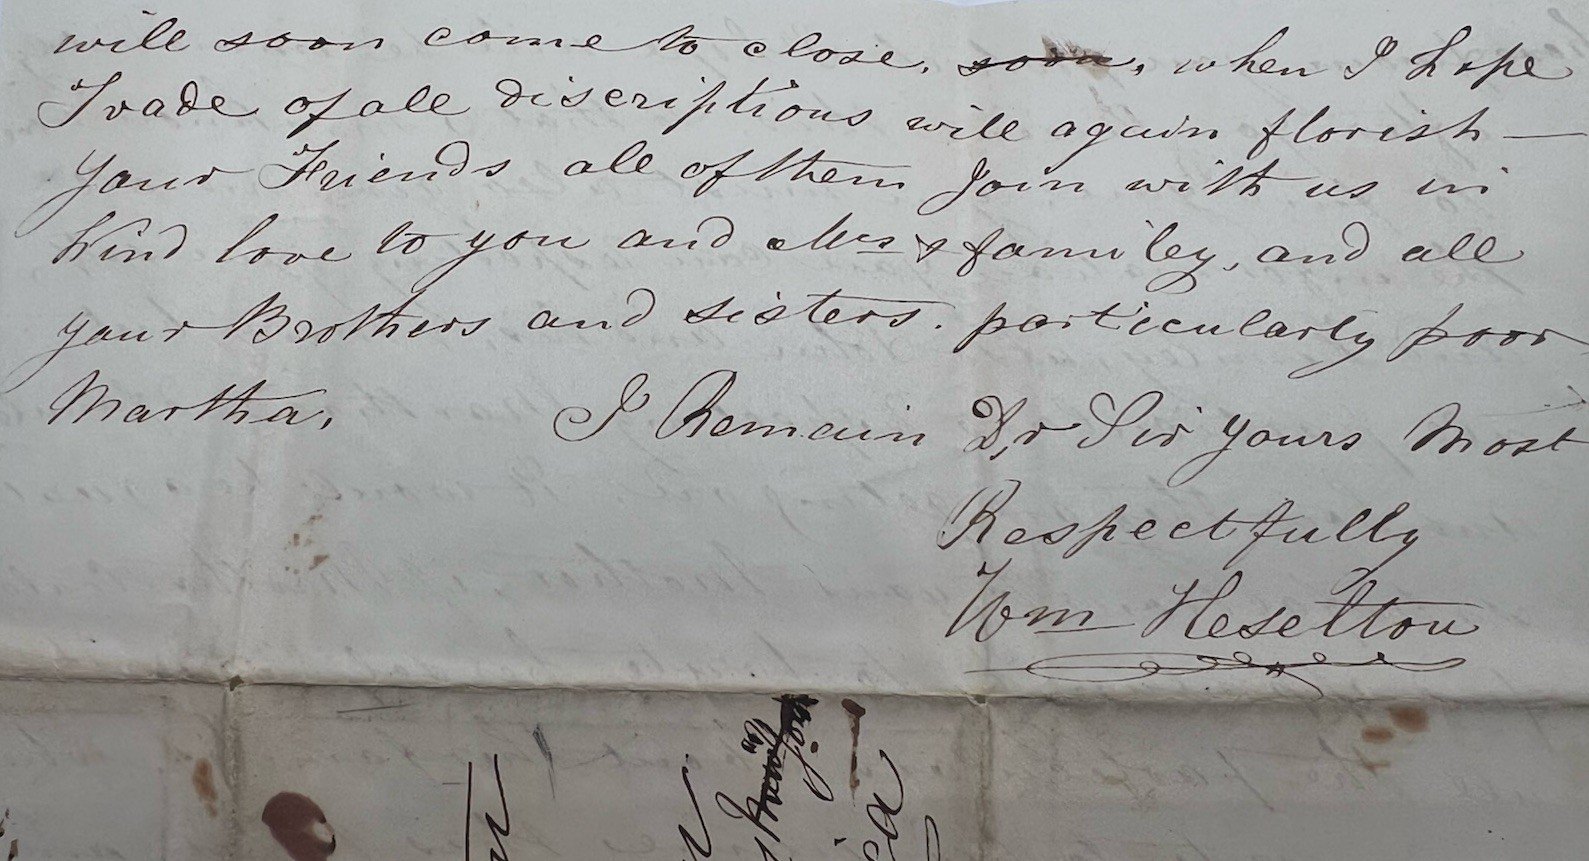 will soon come to close, soon, when I hope
Trade of all discriptions will again florish —
your Friends all of them Join with us in
Kind love to you and Mrs & familey, and all
your Brothers and sisters. particularly poor
Martha,      I Remain Dr Sir yours Most
Respectfully
Wm Heselton